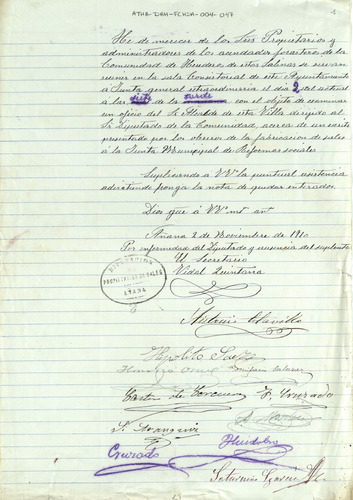 ATHA-DAH-FCHSA-004-047
He de merecer de los Sres Propietarios y
administradores de los acendados forasteros de la
Comunidad de Herederos de estas Salinas se sirvan
reunir en la sala Consistorial de este Ayuntamiento
a Junta general extraordinaria el dia 9 del actual
a las siete de la tarde con el objeto de examinar
un oficio del Sr Alcalde de esta Villa dirigido al
Sr Diputado de la Comunidad, acerca de un escrito
presentado por los obreros de la fabricacion de sales
a la Junta Municipal de Reformas sociales
Suplicando a VV la puntual asistencia
advirtiendo ponga la nota de quedar enterados.
Dios gue a VV ms as
Añana 2 de Noviembre de 1910
Por enfermedad del Diputado y ausencia del suplente
El Secretario
Vidal Quintana
PROPIETARIOS DE SALES
AÑANA
Antonio
Hipolito Saez
Cruzado
Saturnino